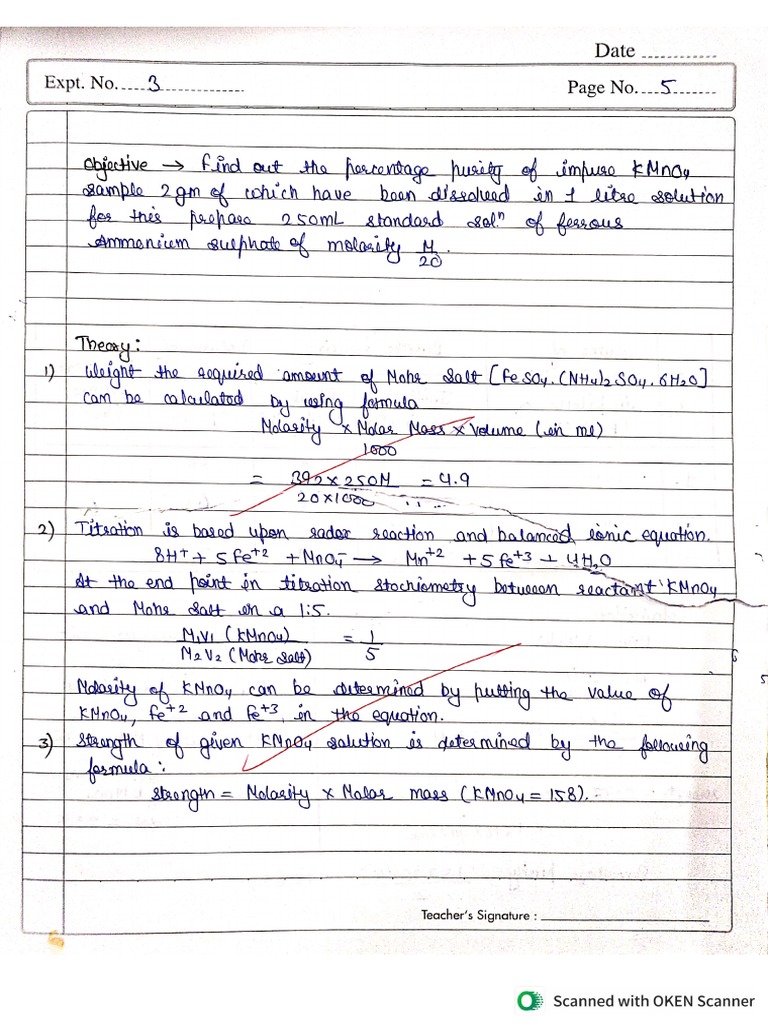 Date ............
Expt. No. 3
Page No. 5
Objective → Find out the percentage purity of impure KMnO4
sample 2 gm of which have been dissolved in 1 litre solution
for this prepare 250mL standard sol.n of ferrous
Ammonium sulphate of molarity M/20.
Theory:
1) Weight the required amount of Mohr salt [FeSO4.(NH4)2SO4.6H2O]
can be calculated by using formula
Molarity × Molar Mass × Volume (in ml)
1000
= 392×250M = 4.9
20×1000
2) Titration is based upon redox reaction and balanced ionic equation.
8H+ + 5Fe+2 + MnO4- → Mn+2 + 5Fe+3 + 4H2O
At the end point in titration stochiometry between reactant KMnO4
and Mohr salt en a 1:5.
M1V1 (KMnO4) = 1
M2V2 (Mohr salt) 5
Molarity of KMnO4 can be determined by putting the value of
KMnO4, Fe+2 and Fe+3, in the equation.
3) Strength of given KMnO4 solution is determined by the following
formula:
strength = Molarity × Molar mass (KMnO4 = 158).
Teacher's Signature :
Scanned with OKEN Scanner